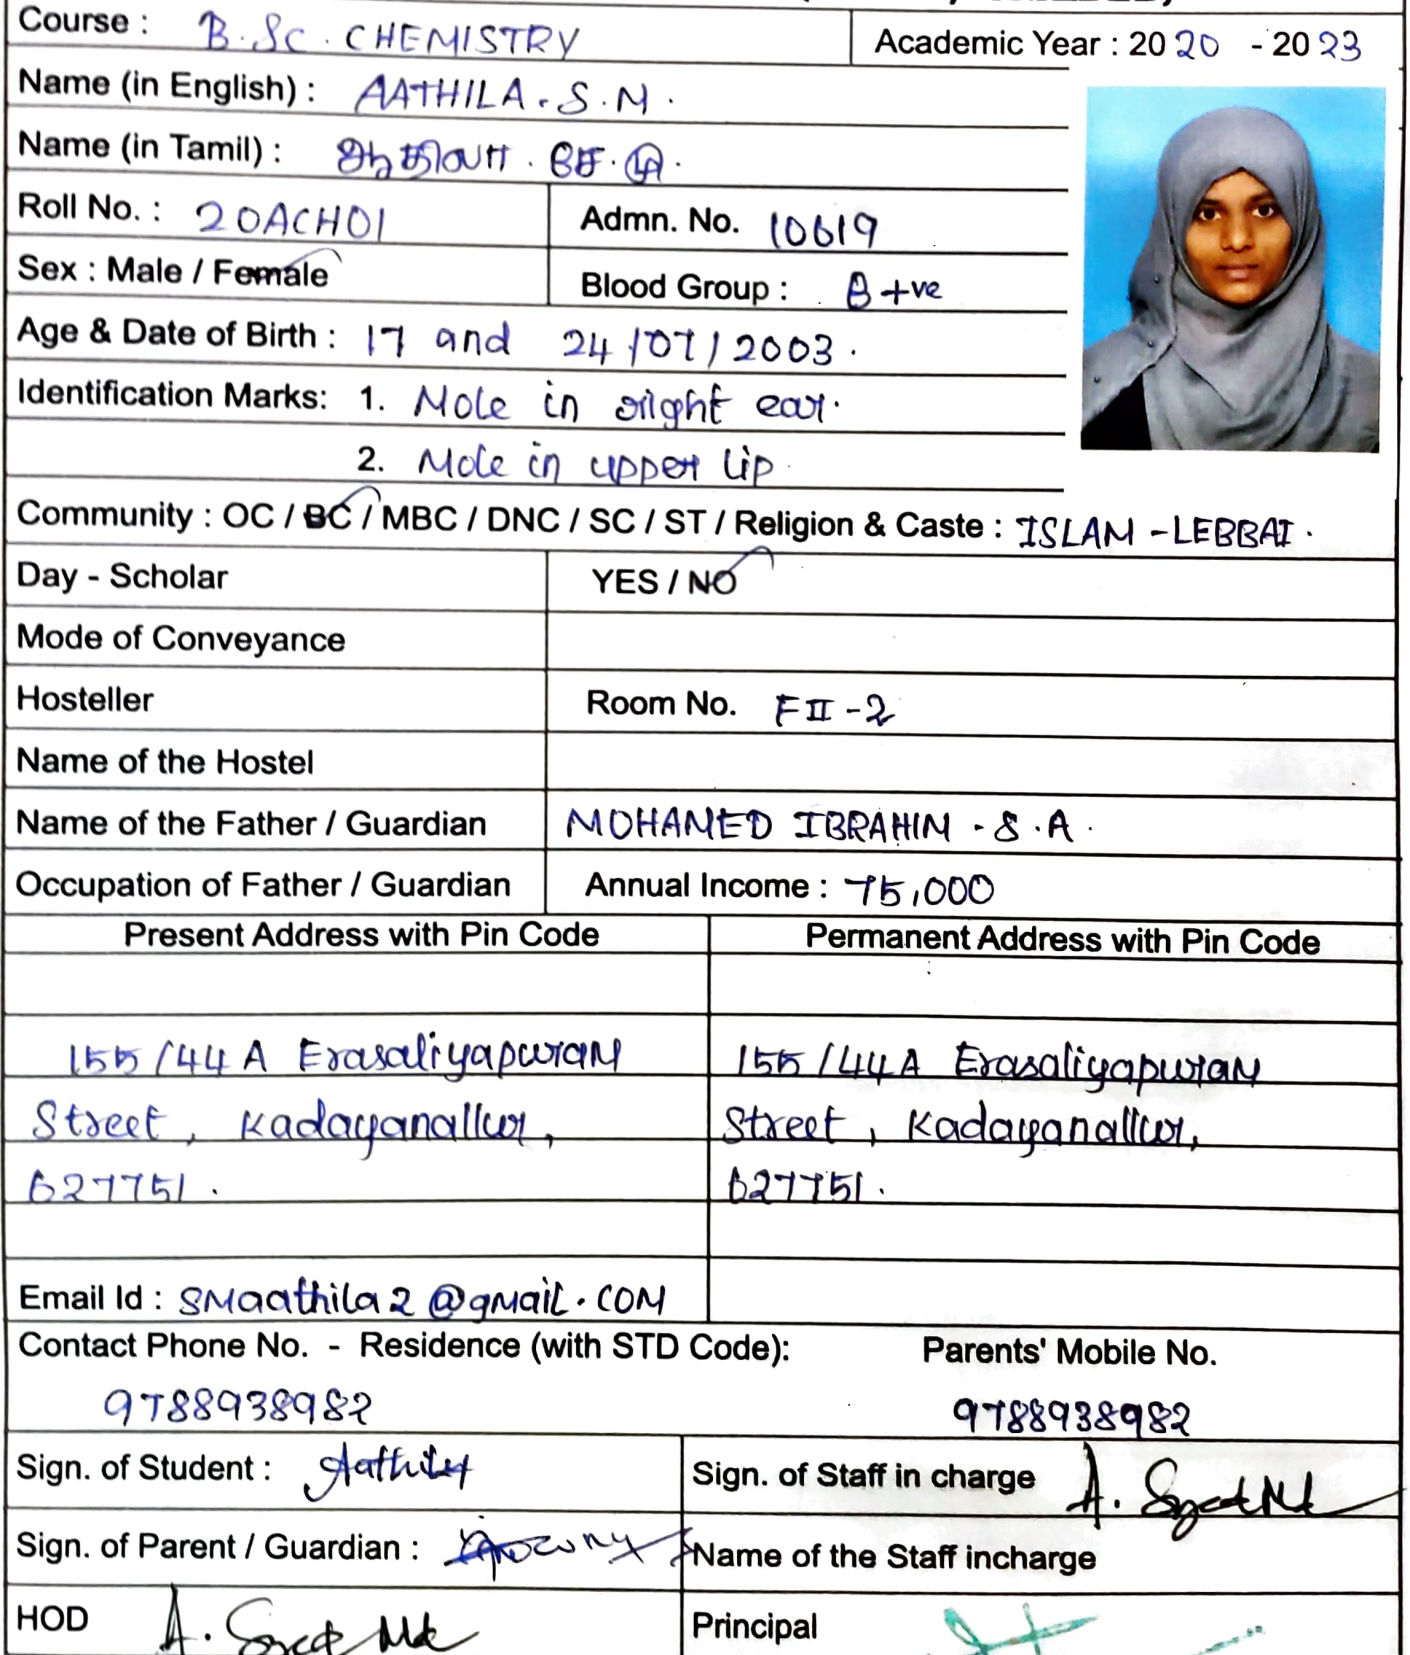 Course : B.Sc. CHEMISTRY
Academic Year : 2020 - 2023
Name (in English) : AATHILA. S.M.
Name (in Tamil) : ஆதிலா.
Roll No. : 20ACH01
Admn. No. 10619
Sex : Male / Female
Blood Group : B +ve
Age & Date of Birth : 17 and 24/07/2003.
Identification Marks: 1. Mole in right ear.
2. Mole in upper lip
Community : OC / BC / MBC / DNC / SC / ST / Religion & Caste : ISLAM - LEBBAI.
Day - Scholar YES / NO
Mode of Conveyance
Hosteller Room No. F II - 2
Name of the Hostel
Name of the Father / Guardian MOHAMED IBRAHIM - S.A.
Occupation of Father / Guardian Annual Income : 75,000
Present Address with Pin Code
155/44 A Erasaliyapuram
Street, Kadayanallur,
627751.
Permanent Address with Pin Code
155/44A Erasaliyapuram
Street, Kadayanallur,
627751.
Email Id : smaathila2@gmail.com
Contact Phone No. - Residence (with STD Code):
9788938982
Parents' Mobile No.
9788938982
Sign. of Student : Aathila
Sign. of Staff in charge A. Syed Md
Sign. of Parent / Guardian :
Name of the Staff incharge
HOD A. Syed Md
Principal